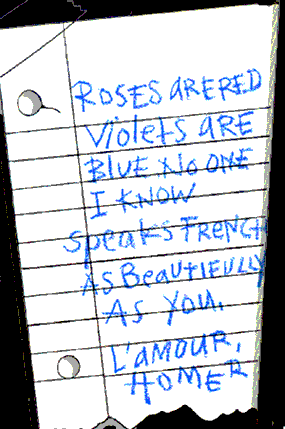 ROSES ARE RED
Violets ARE
BLUE NO ONE
I KNOW
SpeakS FRENCH
AS BeaUTIFULLY
AS YOU.
L'AMOUR,
HOMER